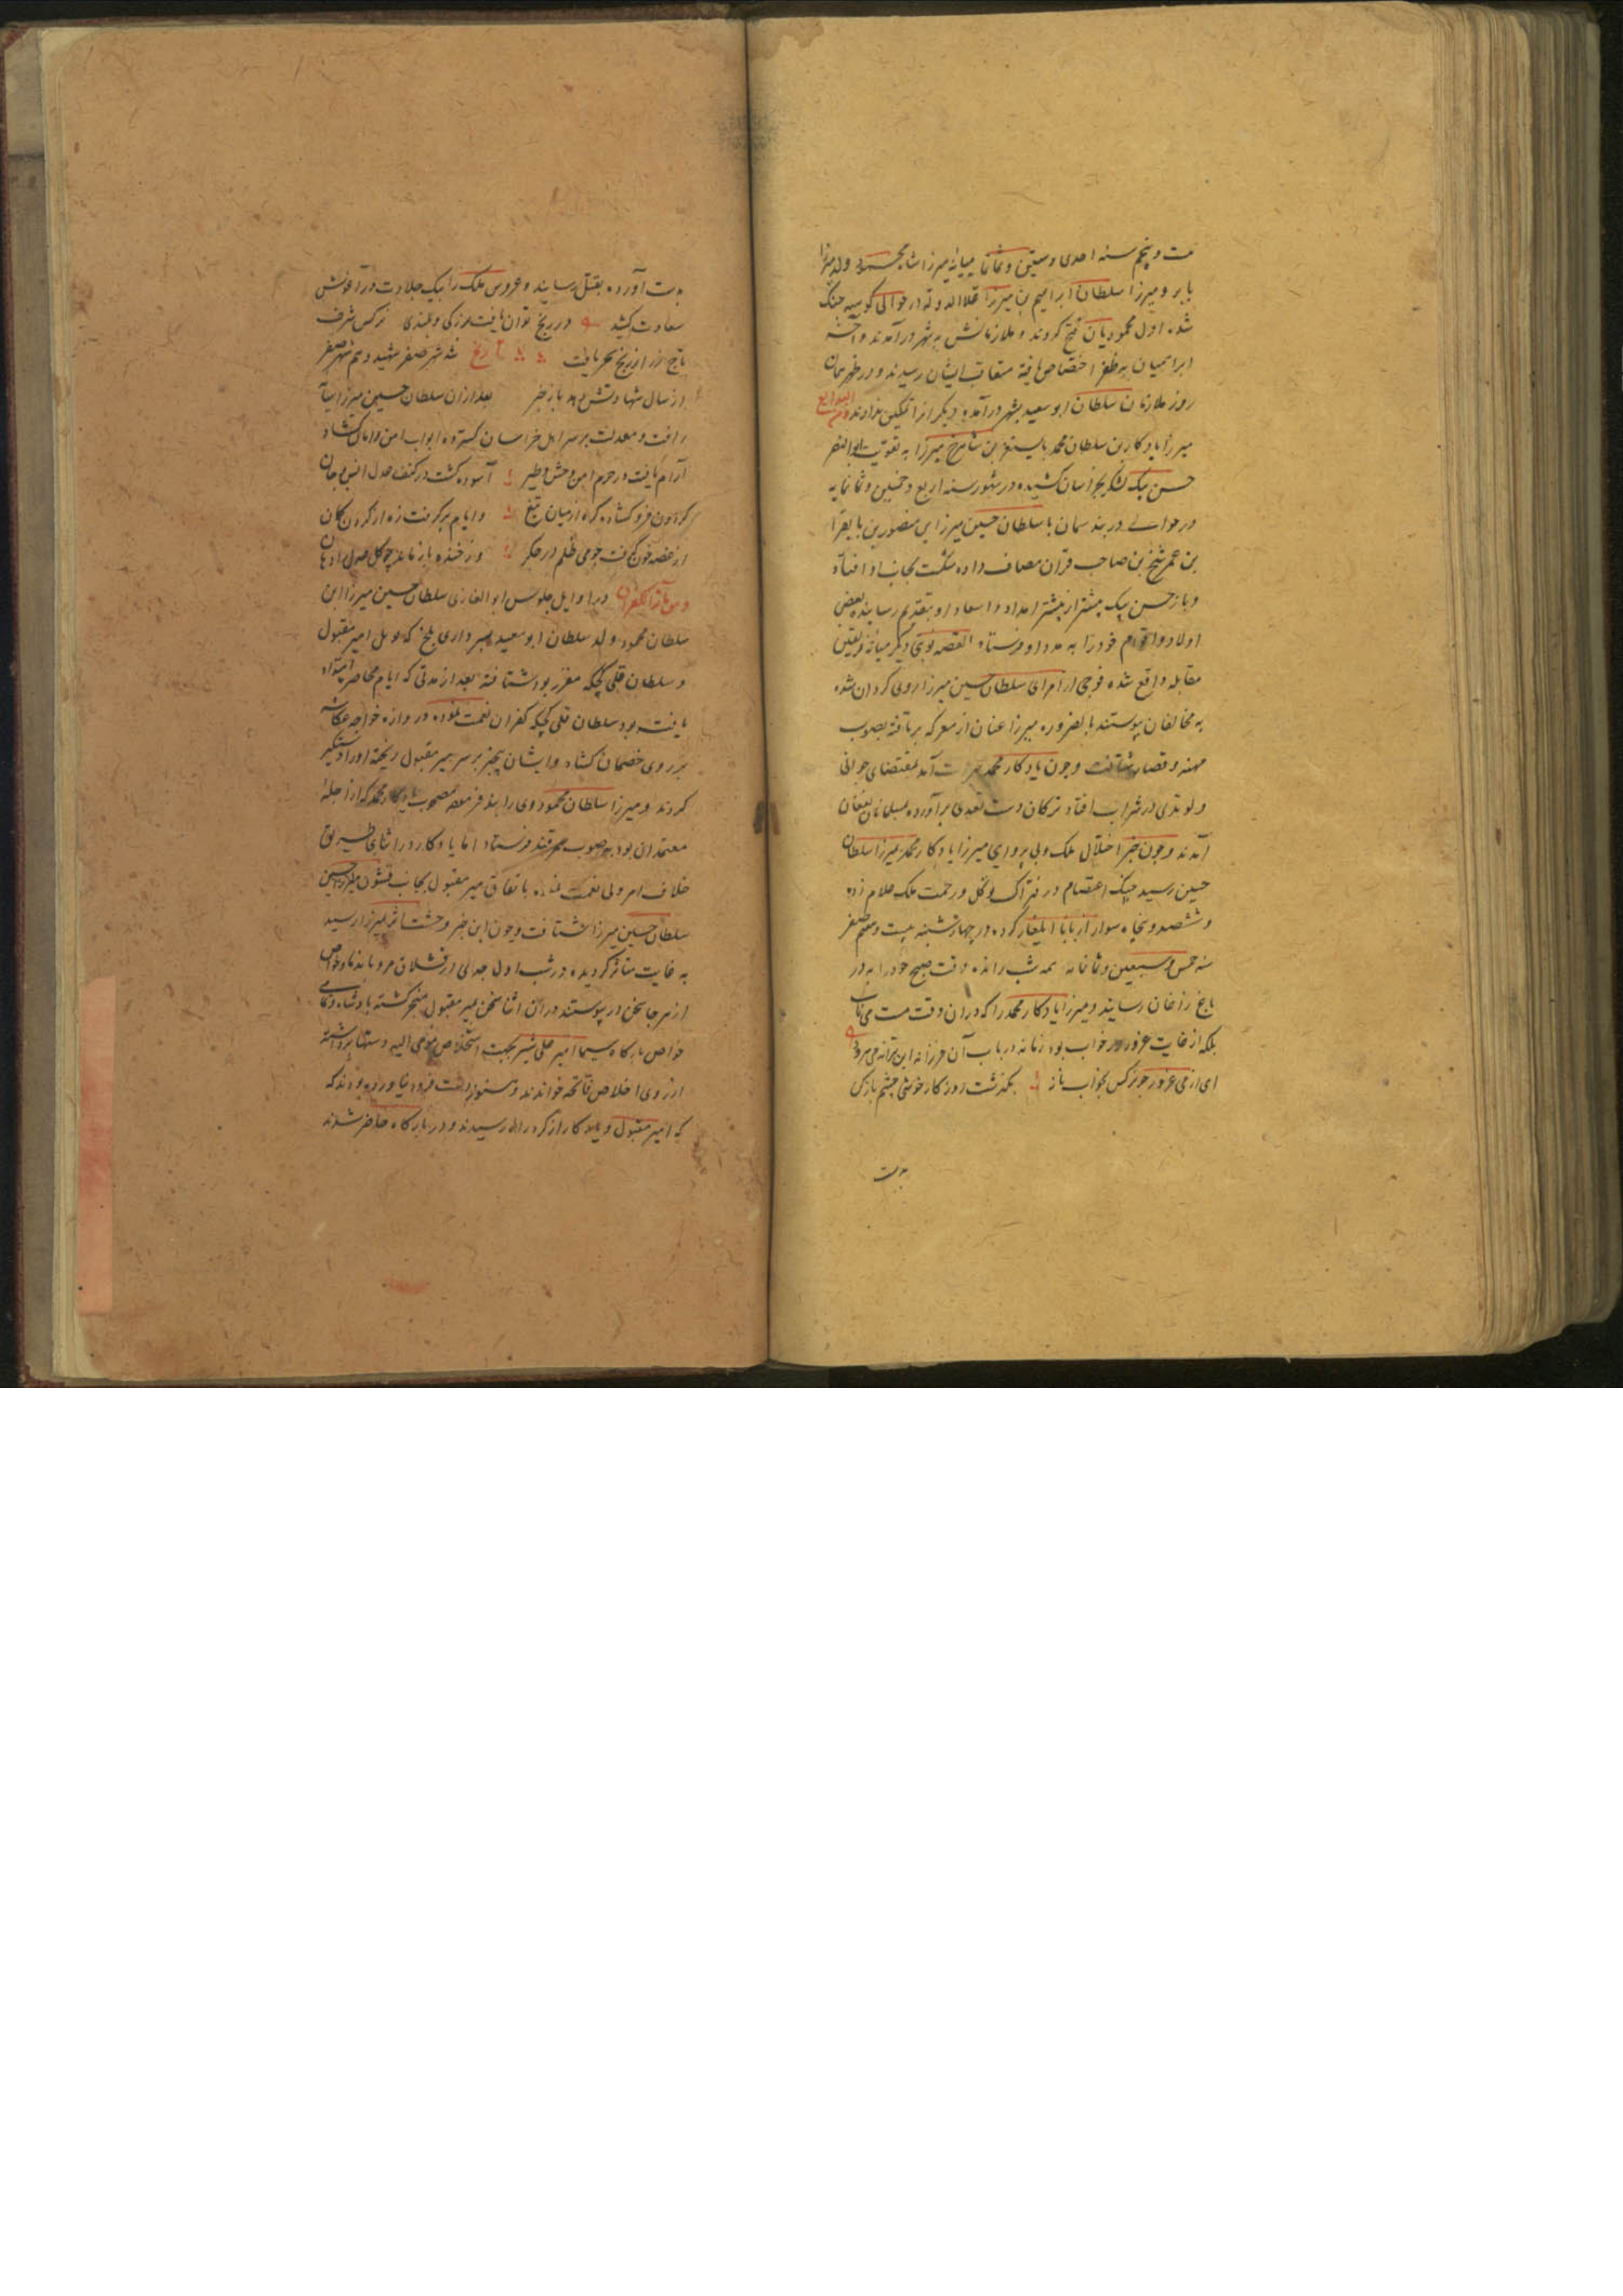 ست و پنجم سنه احدی و ستین و ثمانمایه میانه میرزا شاه محمود ولد میرزا
بابر و میرزا سلطان ابراهیم بن میرزا علاالدوله در حوالی کوسیه جنگ
شد اول محمودیان فتح کردند و ملازمانش به شهر درآمدند و آخر
ابراهیمیان به ظفر اختصاص یافته متعاقب ایشان رسیدند و در ظهر همان
روز ملازمان سلطان ابوسعید بشهر درآمده دیگر انرا تمکین ندادند
میرزا یادکار بن سلطان محمد بایسنغر بن شاهرخ میرزا به تقویت ابوالنصر
حسن بیک لشکر بخراسان کشیده در شهور سنه اربع و خمسین و ثمانمایه
در حوالی دربند سمان با سلطان حسین میرزا ابن منصور بن بایقرا
بن عمر شیخ بن صاحب قران مصاف داده شکست بجانب او افتاد
و باز حسن بیک بیشتر از پیشتر امداد و اسعاد او بتقدیم رسانیده بعضی
اولاد و اقوام خود را به مدد او فرستاد القصه نوبتی دیگر میانه فریقین
مقابله واقع شده فوجی از امرای سلطان حسین میرزا روی کردان شده
به مخالفان پیوستند بالضروره میرزا عنان از معرکه برتافته بصوب
میمنه و قصار شتافت و چون یادکار محمد بهرات آمد بمقتضای جوانی
و لوندی در شراب افتاد ترکان دست تعدی برآورده مسلمانان بفغان
آمدند و چون خبر اختلال ملک و بی پروای میرزا یادکار محمد بمیرزا سلطان
حسین رسید چنگ اعتصام در فتراک توکل و رحمت ملک علام زده
و ششصد و پنجاه سوار از بابا ایلغار کرده در چهارشنبه بیست و هفتم صفر
سنه خمس و سبعین و ثمانمایه همه شب رانده وقت صبح خود را به در
باغ زاغان رسانید و میرزا یادکار محمد را که در آن وقت مست می ناب
بلکه از غایت غرور در خواب بود زمانه در باب آن فرزانه این ترانه می سرود
ای از می غرور چو نرکس بخواب ناز بکذشت روزکار خوشی چشم باز کن
بدست
بدست آورده بقتل رسانید و عروس ملک را بیک جلادت در آغوش
سعادت کشید در رنج توان یافت بزرکی و بلندی نرکس شرف
تاج زر از رنج سحر یافت تاریخ شد شهر صفر شهید و هم شهر صفر
از سال شهادتش دهد باز خبر بعد از ان سلطان حسین میرزا
رافت و معدلت بر سر اهل خراسان کسترده ابواب امن و امان کشاد
آرام یافت در حرم امن وحش و طیر آسوده کشت در کنف عدل انس و جان
کردون فرو کشاد کره از میان تیغ و ایام برکرفت زه از کردن کمان
از غصه خون کرفت چو می ظلم در جکر وز خنده باز ماند چو کل عدل را دهان
در اوایل جلوس ابوالغازی سلطان حسین میرزا ابن
سلطان محمود ولد سلطان ابوسعید بسرداری بلخ که امیر مقبول
و سلطان قلی کچکه مقرر بود شتافته بعد از مدتی که ایام محاصره امتداد
یافته بود سلطان قلی کچکه کفران نعمت نموده دروازه خواجه عکاشه
بر روی خصمان کشاد و ایشان بیخبر بر سر میر مقبول ریخته او را دستکیر
کردند و میرزا سلطان محمود وی را بند فرموده مصحوب یادکار محمد که از جمله
معتمدان بود به صوب سمرقند فرستاد اما یادکار در اثنای طریق
خلاف امر ولی نعمت نموده باتفاق میر مقبول بجانب قشون میرزا حسین
سلطان حسین میرزا شتافت و چون این خبر وحشت اثر بمیرزا رسید
به غایت متاثر کردیده در شب اول در قشلاق مرو با ندما و خواص
از هر جا سخن در پیوستند در آن اثنا سخن میر مقبول منجر کشته بادشاه و تمامی
خواص بارکاه سیما امیر علی شیر بجهت استخلاص مومی الیه دستها برداشته
از روی اخلاص فاتحه خواندند و هنوز دست فرود نیاورده بودند که
که امیر مقبول و یادکار از کرد راه رسیدند و در بارکاه حاضر شدند